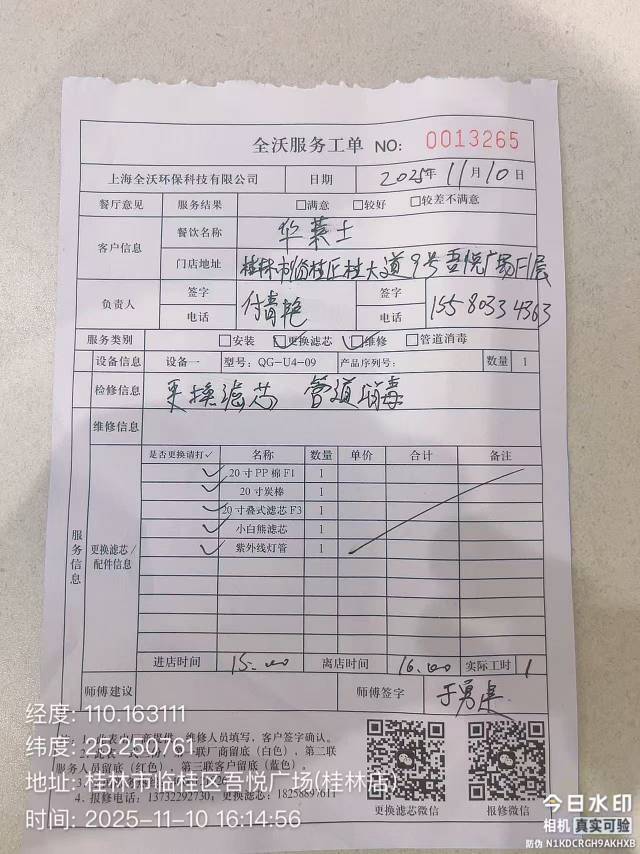 全沃服务工单 NO: 0013265
上海全沃环保科技有限公司 日期 2025年 11月 10日
餐厅意见 服务结果 □满意 □较好 □较差不满意
客户信息 餐饮名称 华莱士
门店地址 桂林市临桂区桂大道9号吾悦广场F1层
负责人 签字 付青艳 签字
电话 电话 15580334363
服务类别 □安装 ☑更换滤芯 ☑维修 □管道消毒
设备信息 设备一 型号: QG-U4-09 产品序列号: 数量 1
检修信息 更换滤芯 管道消毒
维修信息
服务信息 更换滤芯/配件信息
是否更换请打✓ 名称 数量 单价 合计 备注
✓ 20寸PP棉F1 1
✓ 20寸炭棒 1
✓ 20寸叠式滤芯F3 1
✓ 小白熊滤芯 1
✓ 紫外线灯管 1
进店时间 15:00 离店时间 16:00 实际工时 1
师傅建议 师傅签字
维修人员填写，客户签字确认。
联厂商留底（白色），第二联
服务人员留底（红色），第三联客户留底（蓝色）。
4. 报修电话: 13732292730;
更换滤芯微信 报修微信
经度: 110.163111
纬度: 25.250761
地址: 桂林市临桂区吾悦广场(桂林店)
时间: 2025-11-10 16:14:56
今日水印
相机 真实可验
防伪 N1KDCRGH9AKHXB